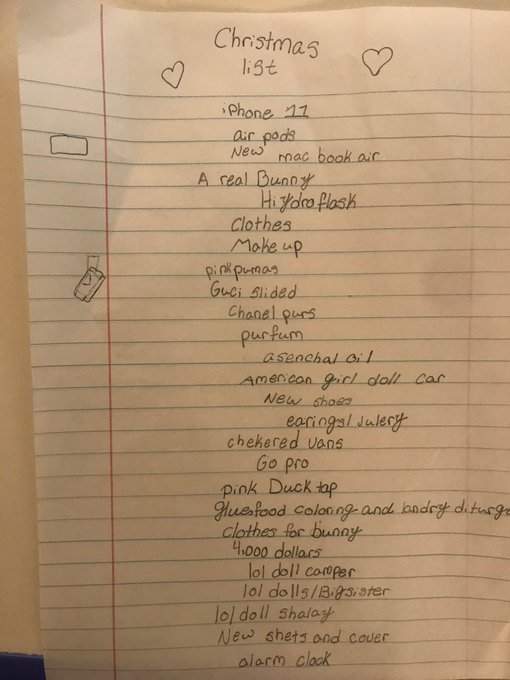 Christmas
list
iPhone 11
air pods
New mac book air
A real Bunny
Hiydroflask
clothes
Make up
pinkpumas
Guci slided
Chanel purs
purfum
asenchal oil
American girl doll car
New shoes
earings/Julery
chekered vans
Go pro
pink Duck tap
glue&food coloring and landry diturge
Clothes for bunny
4,000 dollars
lol doll camper
lol dolls/Bigsister
lol doll shalay
New shets and cover
alarm clock